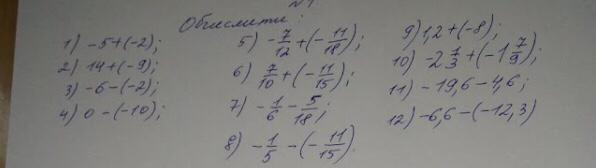 Обчислити:
1) -5+(-2);
2) 14+(-9);
3) -6-(-2);
4) 0-(-10);
5) -7/12+(-11/18);
6) 7/10+(-11/15);
7) -1/6-5/18;
8) -1/5-(-11/15).
9) 1,2+(-8);
10) -2 1/3+(-1 7/9);
11) -19,6-4,6;
12) -6,6-(-12,3)